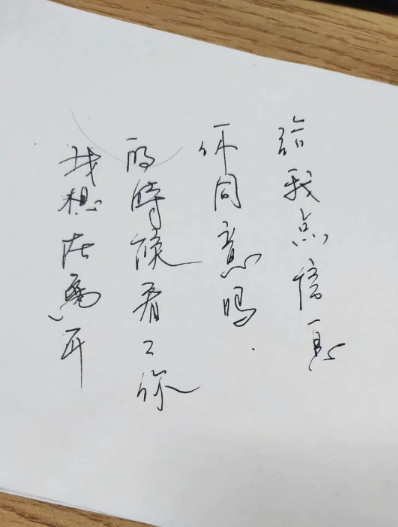 我想在离开
的時候看々你
你同意吗.
给我点信息